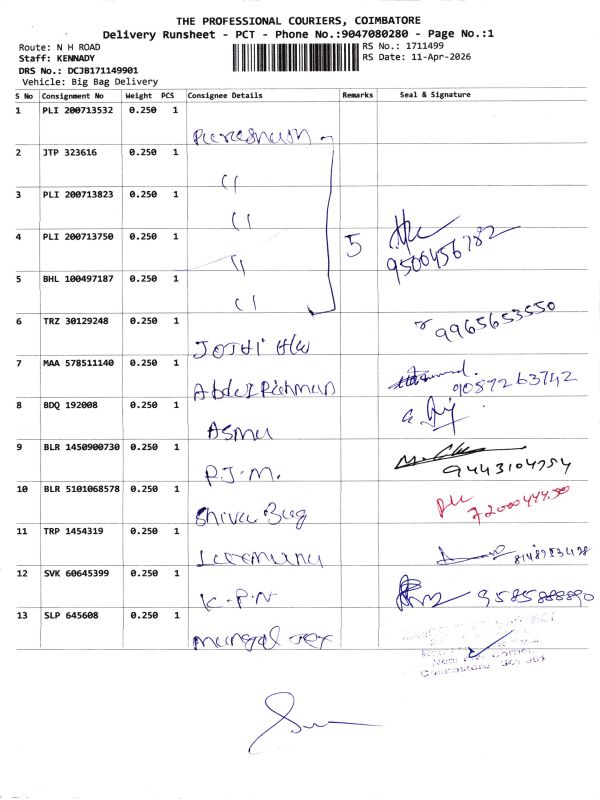 THE PROFESSIONAL COURIERS, COIMBATORE
Delivery Runsheet - PCT - Phone No.:9047080280 - Page No.:1
Route: N H ROAD
RS No.: 1711499
Staff: KENNADY
RS Date: 11-Apr-2026
DRS No.: DCJB171149901
Vehicle: Big Bag Delivery
S No Consignment No Weight PCS Consignee Details Remarks Seal & Signature
1 PLI 200713532 0.250 1
2 JTP 323616 0.250 1
3 PLI 200713823 0.250 1
4 PLI 200713750 0.250 1 5
9500456782
5 BHL 100497187 0.250 1
6 TRZ 30129248 0.250 1 JOTHI 9965653550
7 MAA 578511140 0.250 1 Abdul Rahman 9087263742
8 BDQ 192008 0.250 1 ASMA
9 BLR 1450900730 0.250 1 P.J.M. 9443104754
10 BLR 5101068578 0.250 1 Shiva Bag
11 TRP 1454319 0.250 1
12 SVK 60645399 0.250 1 K.P.N 9585888890
13 SLP 645608 0.250 1 mungal Tex